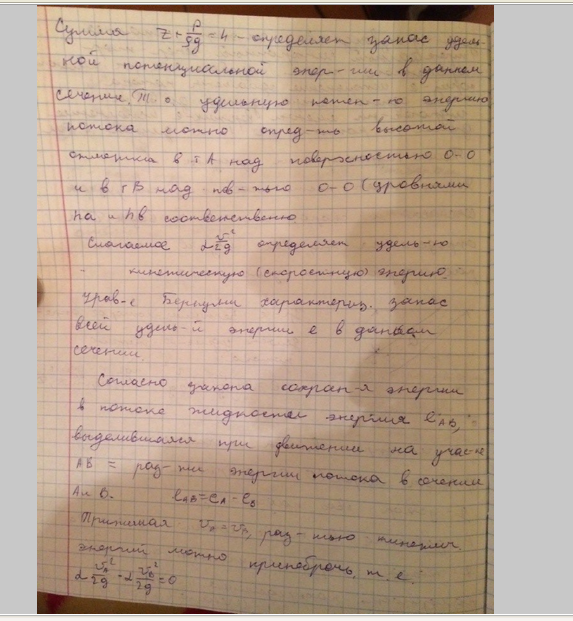 Сумма z + P/ρg = h - определяет запас удель-
ной потенциальной энер-гии в данном
сечение. Т.о удельную потен-ю энергию
потока можно опред-ть высотой
отметки в т А над поверхностью 0-0
и в т В над пов-тью 0-0 (уровнями
ha и hв соответвенно
Слагаемое α v²/2g определяет удель-ю
- кинетическую (скоростную) энергию.
Урав-е Бернулли характериз. запас
всей удель-й энергии e в данном
сечении.
Согласно закона сохран-я энергии
в потоке жидкости энергия e AB,
выделившаяся при движении на учас-ке
AB = раз-ти энергии потока в сечении
А и В. eAB = eA - eB
Принимая vA = vB, раз-тью кинетич.
энергий можно принебречь, т.е.
α vA²/2g - α vB²/2g = 0